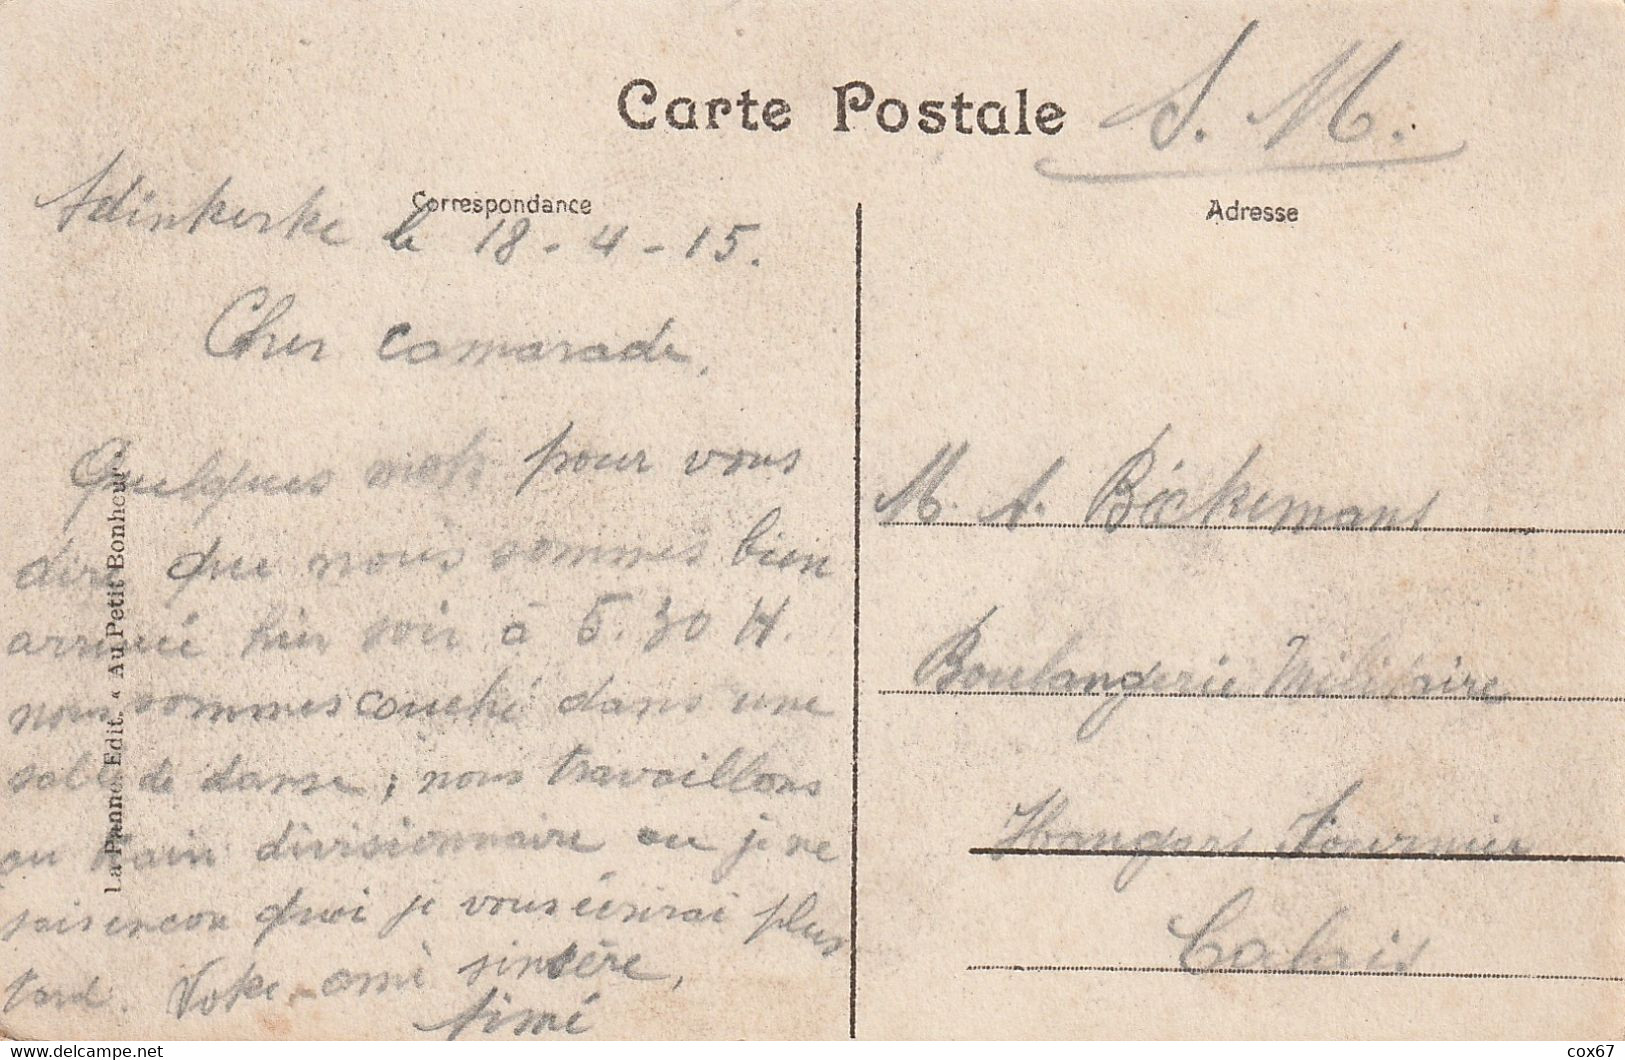 Carte Postale
S. M.
Correspondance
Adresse
Adinkerke le 18-4-15.
Cher camarade,
Quelques mots pour vous
dire que nous sommes bien
arrivé hier soir à 5.30 H.
nous sommes couché dans une
salle de danse; nous travaillons
au train divisionnaire ou je ne
sais encore quoi je vous écrirai plus
tard. Votre ami sincère,
Aimé
La Panne. Edit. « Au Petit Bonheur.
M. A. Böckemans
Boulangerie Militaire
Hangars Fournier
Calais
delcampe.net
cox67